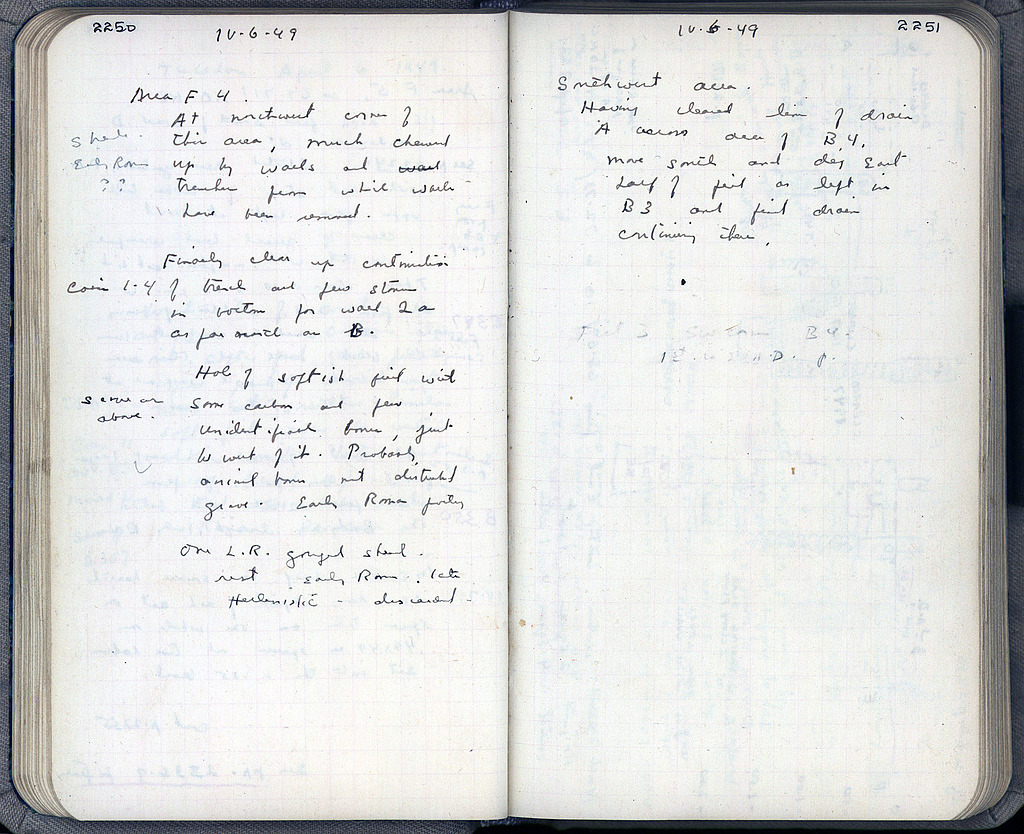 2250
IV-6-49
Area F 4.
At northwest corner of
this area, much chewed
Sherds.
Early Roman
??
up by walls and wall
trenches from which walls
have been removed.
Finally clear up continuation
Coin 1-4
of trench and few stones
in bottom for wall 2a
as far south as B.
Hole of softish fill with
same as
above.
some carbon and few
unidentifiable bones, just
to west of it. Probably
animal bones not disturbed
grave. Early Roman pottery
One L.R. gouged sherd.
rest early Roman. late
Hellenistic - discarded -
IV-6-49
2251
Southwest area.
Having cleared line of drain
A across area of B 4,
move south and dig East
half of fill as left in
B 3 and find drain
continuing there.
Fill 3 B4.
1st. A.D. p.